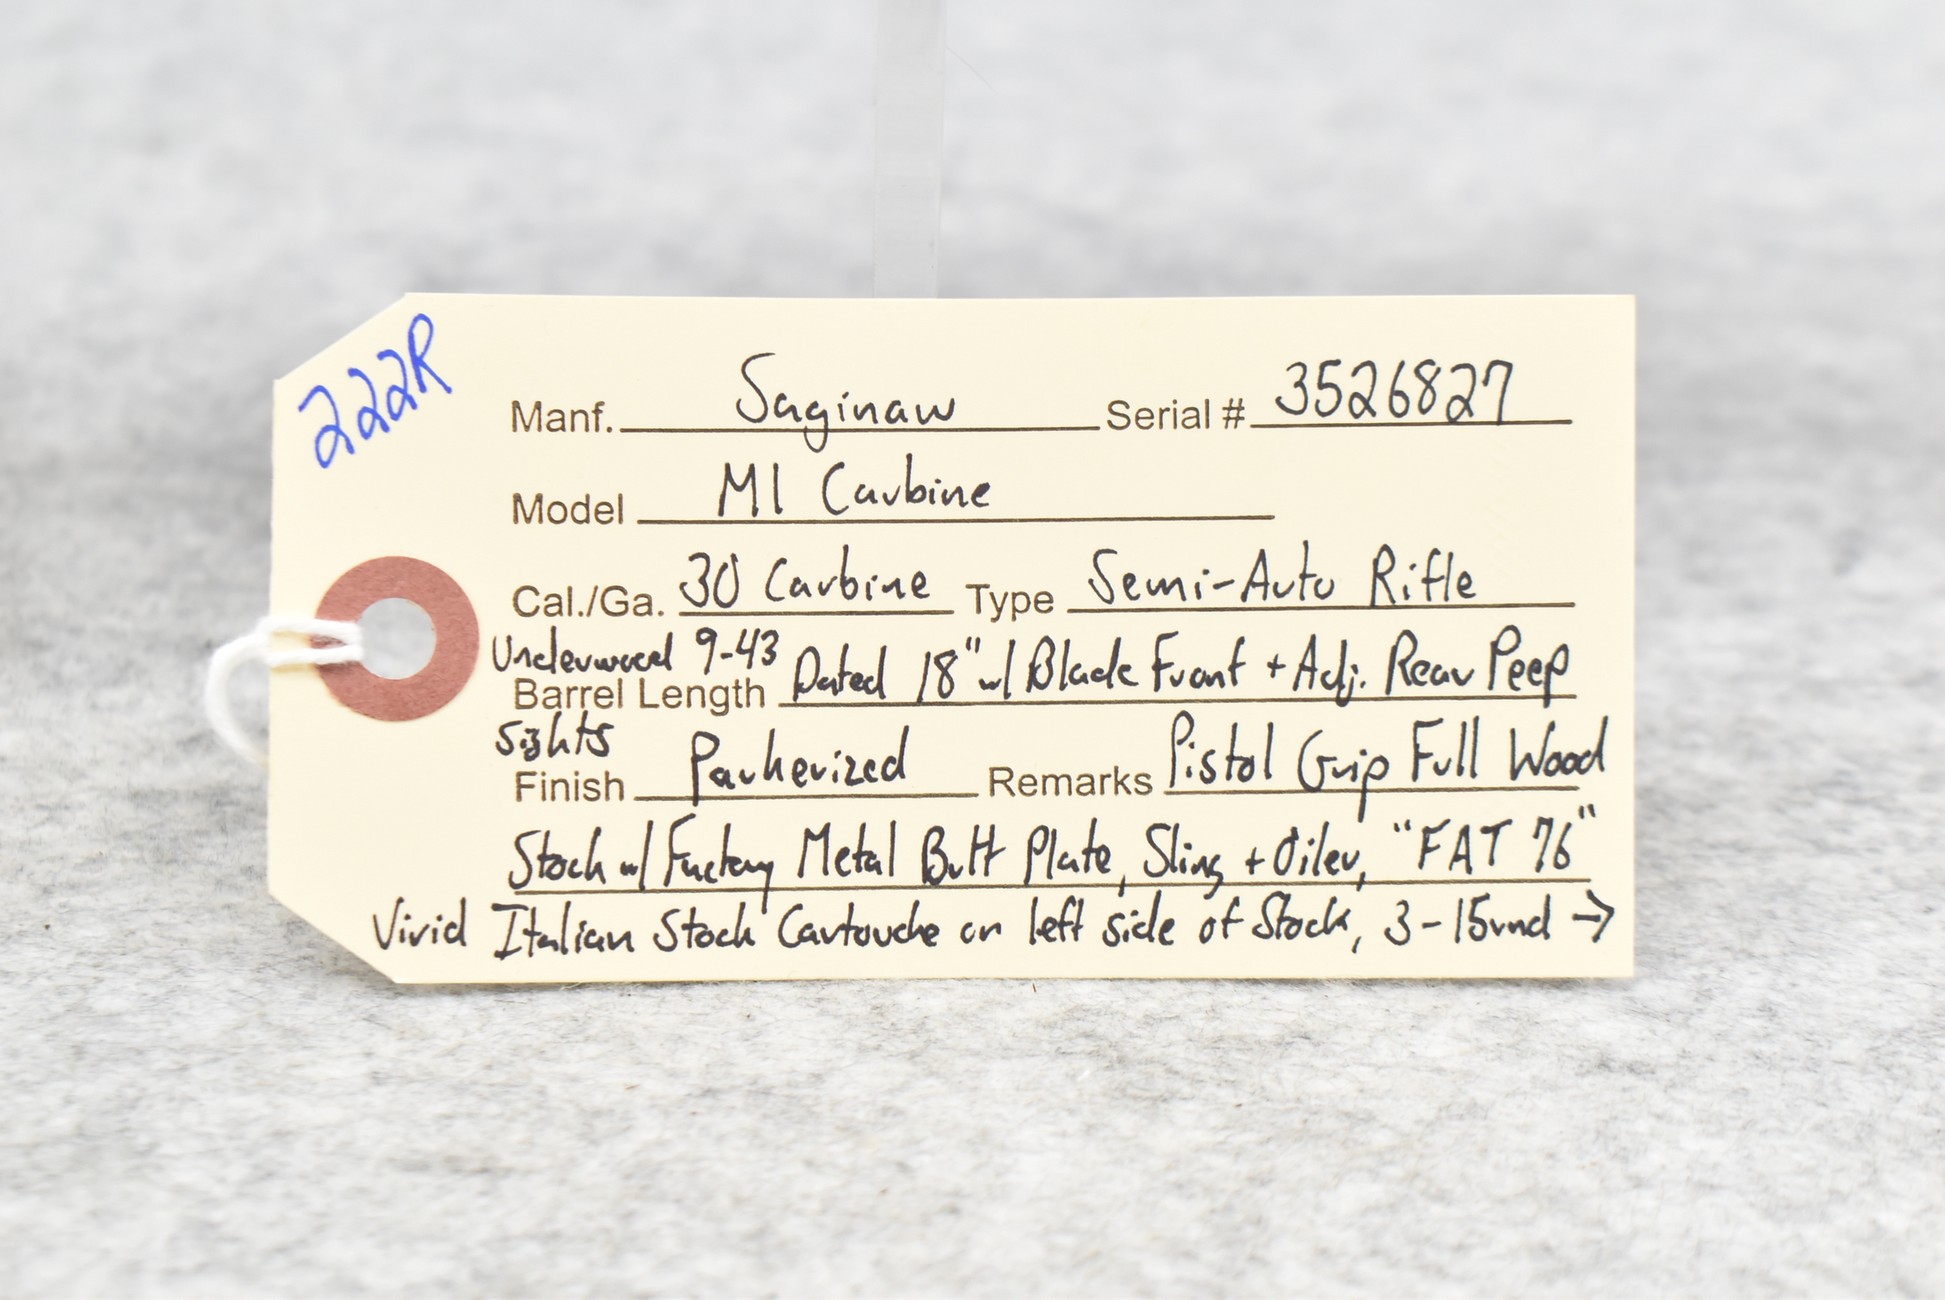 222R
Manf. Saginaw Serial # 3526827
Model M1 Carbine
Cal./Ga. 30 Carbine Type Semi-Auto Rifle
Underwood 9-43
Barrel Length Dated 18" w/ Blade Front + Adj. Rear Peep
Sights
Finish Parkerized Remarks Pistol Grip Full Wood
Stock w/ Factory Metal Butt Plate, Sling + Oiler, "FAT 76"
Vivid Italian Stock Cartouche on left side of Stock, 3-15rnd →